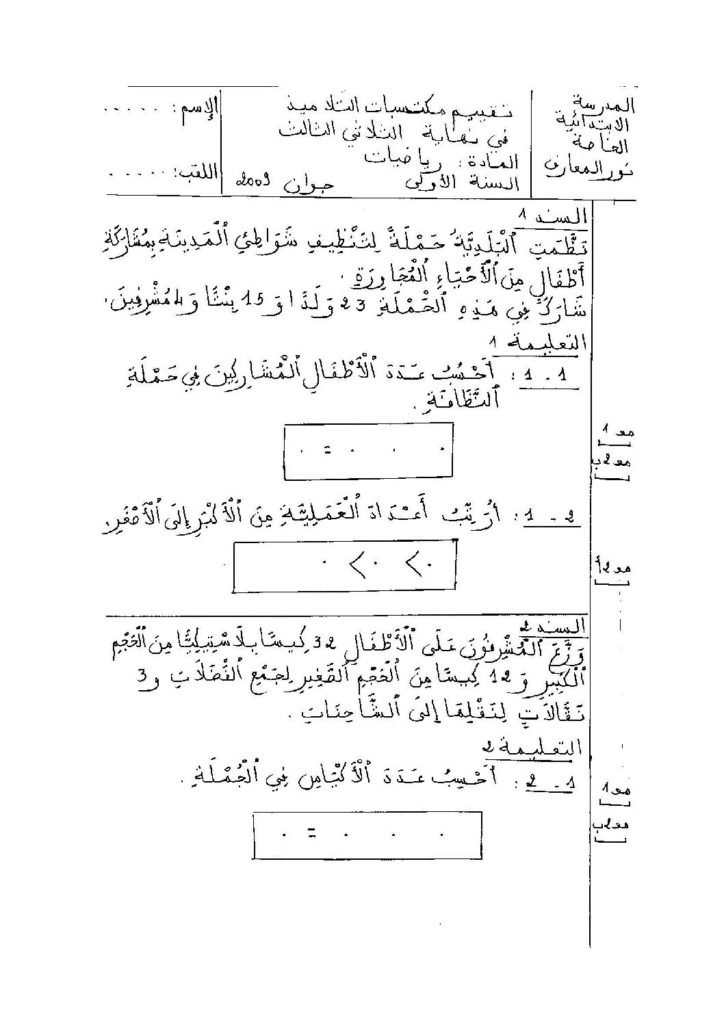 المدرسة
الابتدائية
الخاصة
نور المعارف
تقييم مكتسبات التلاميذ
في نهاية الثلاثي الثالث
المادة : رياضيات
السنة الأولى جوان 2009
الإسم: . . . . .
اللقب: . . . . .
السند 1
نَظَّمَتِ ٱلْبَلَدِيَّةُ حَمْلَةً لِتَنْظِيفِ شَوَاطِئِ ٱلْمَدِينَةِ بِمُشَارَكَةِ
أَطْفَالٍ مِنَ ٱلْأَحْيَاءِ ٱلْمُجَاوِرَةِ .
شَارَكَ فِي هَذِهِ ٱلْحَمْلَةِ 23 وَلَدًا وَ 15 بِنْتًا وَ 4 مُشْرِفِينَ.
التعليمة 1
1 - 1 : أَحْسُبُ عَدَدَ ٱلْأَطْفَالِ ٱلْمُشَارِكِينَ فِي حَمْلَةِ
ٱلنَّظَافَةِ .
مع 1
مع 2ب
. . . = .
1 - 2 : أُرَتِّبُ أَعْدَادَ ٱلْعَمَلِيَّةِ مِنَ ٱلْأَكْبَرِ إِلَى ٱلْأَصْغَرِ.
مع 2أ
. > . > .
السند 2
وَزَّعَ ٱلْمُشْرِفُونَ عَلَى ٱلْأَطْفَالِ 32 كِيسًا بِلَاسْتِيكِيًّا مِنَ ٱلْحَجْمِ
ٱلْكَبِيرِ وَ 12 كِيسًا مِنَ ٱلْحَجْمِ ٱلصَّغِيرِ لِجَمْعِ ٱلْفَضَلَاتِ وَ 3
نَقَّالَاتٍ لِنَقْلِهَا إِلَى ٱلشَّاحِنَاتِ .
التعليمة 2
2 - 1 : أَحْسِبُ عَدَدَ ٱلْأَكْيَاسِ فِي ٱلْجُمْلَةِ .
مع 1
مع 2ب
. . . = .